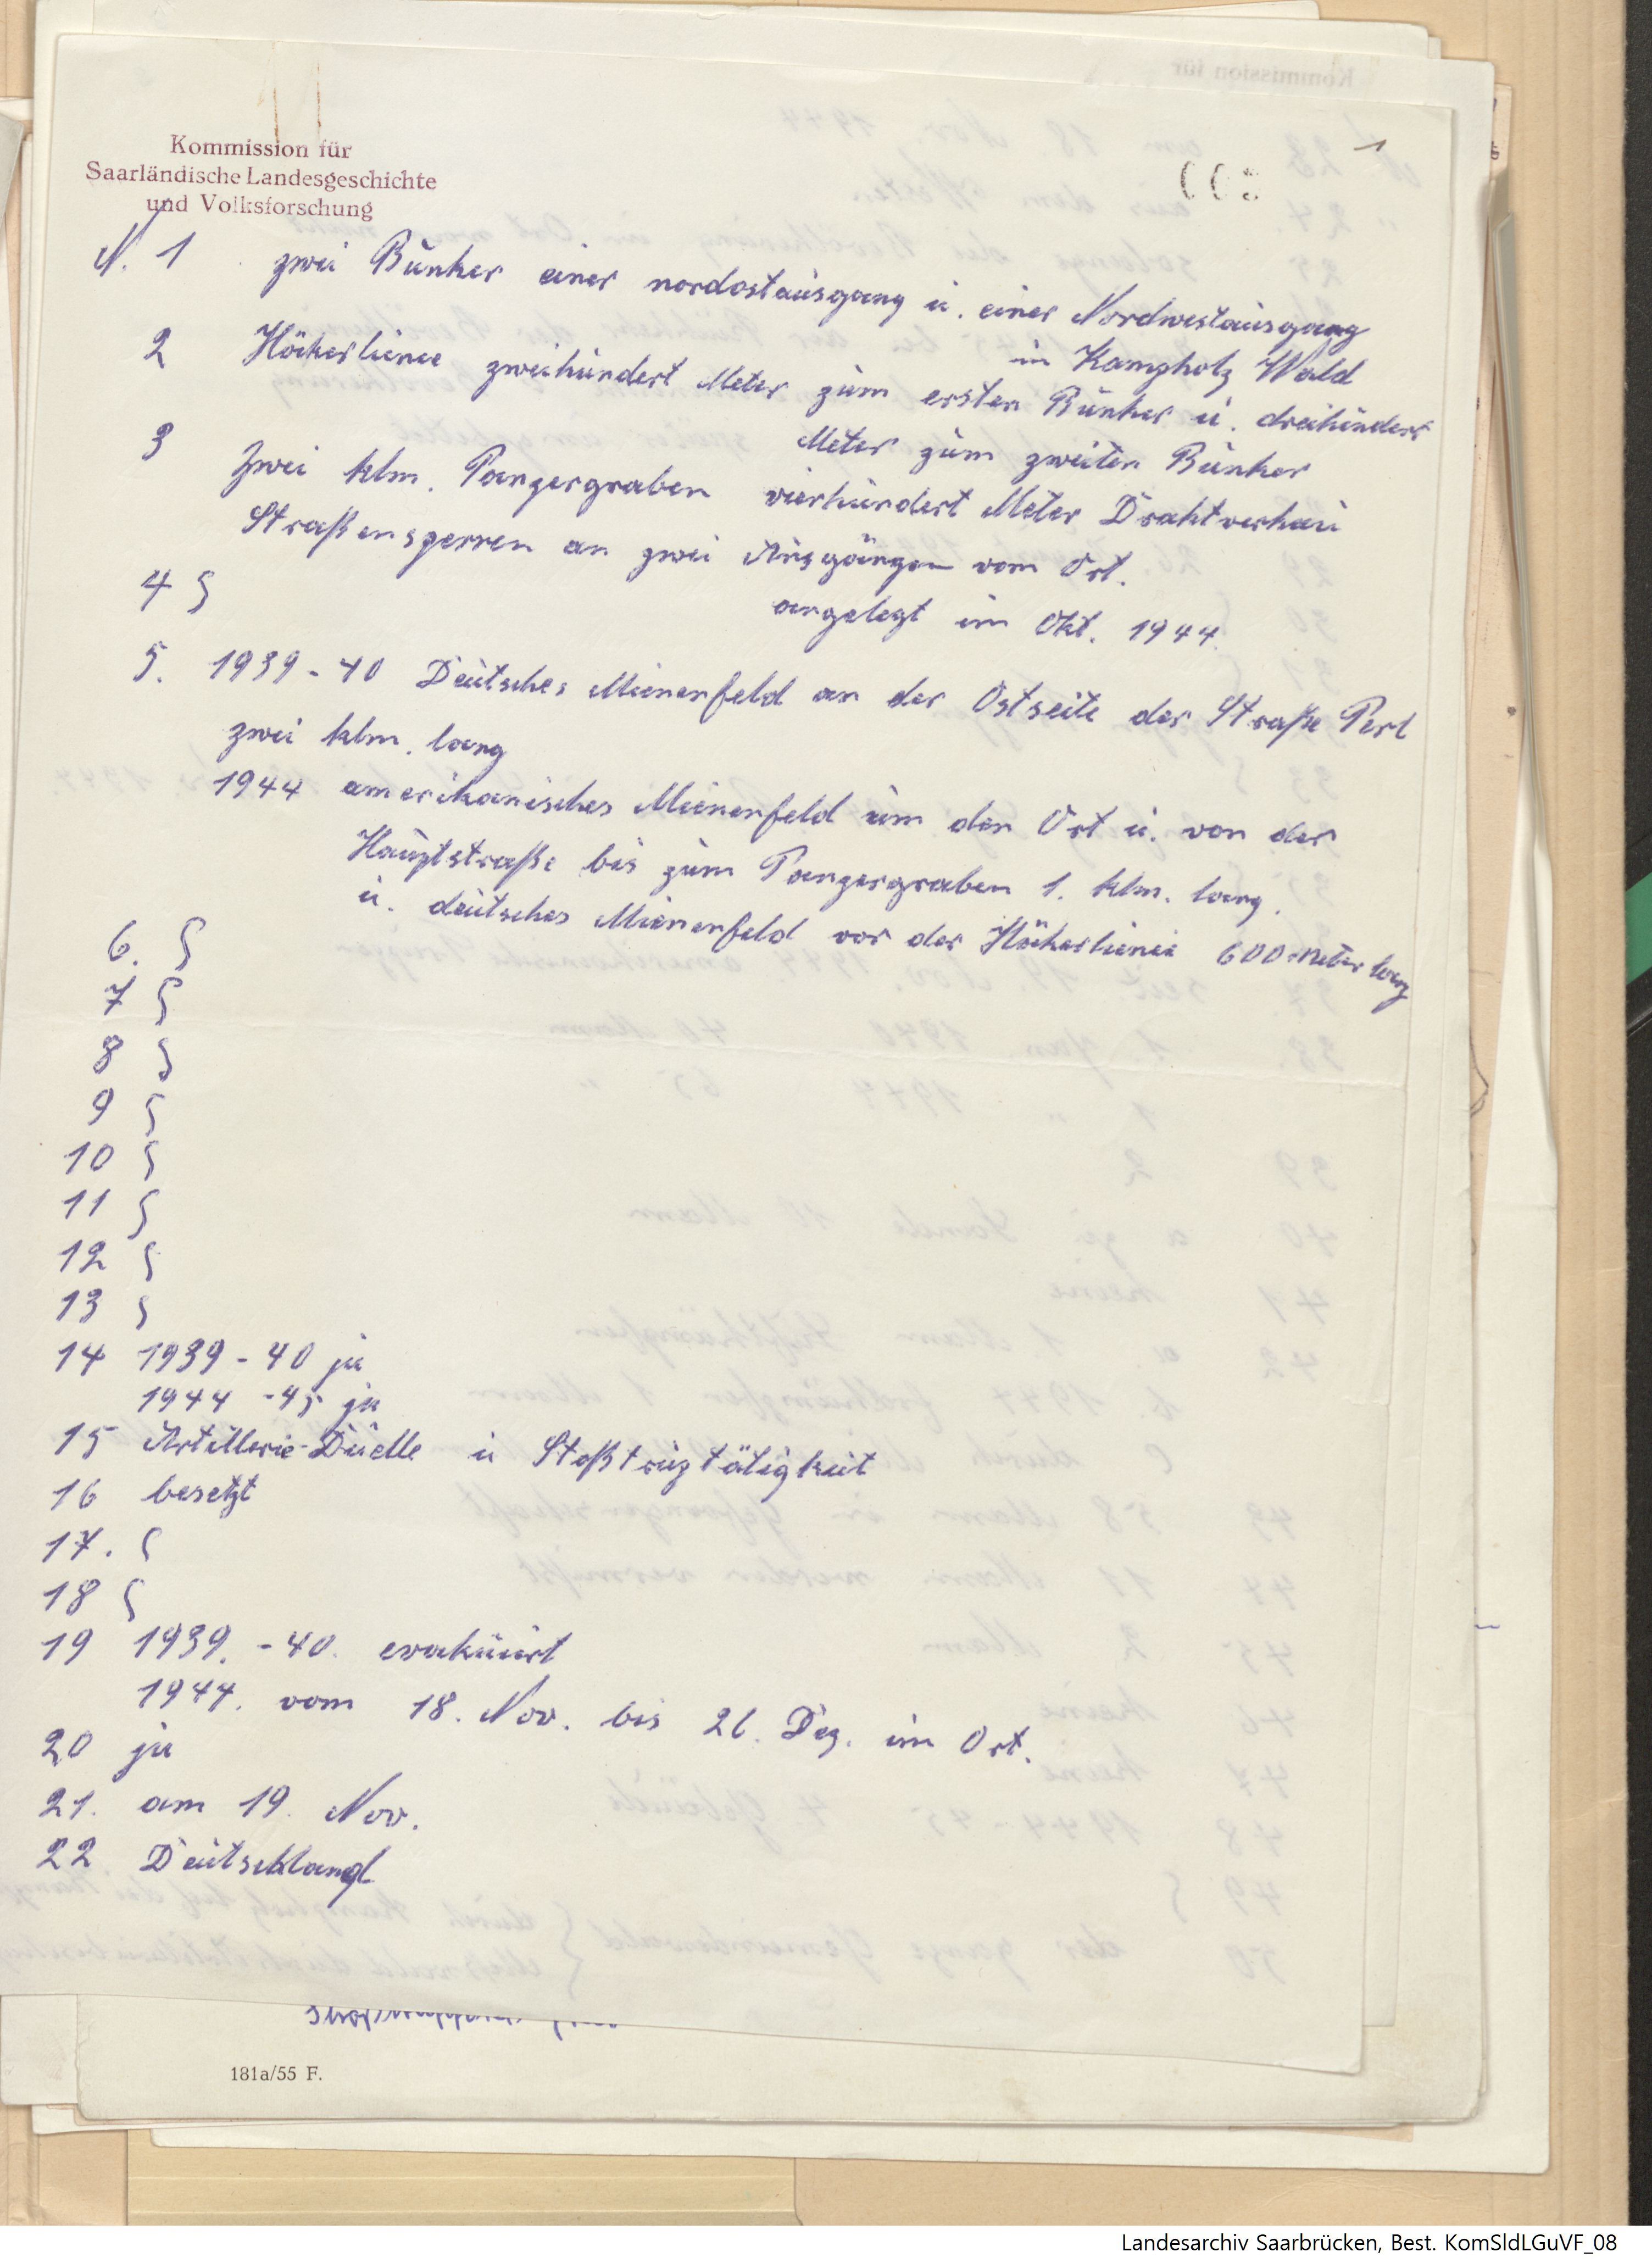 1
Kommission für
Saarländische Landesgeschichte
und Volksforschung
N. 1 zwei Bunker einer nordostausgang u. einer Nordwestausgang
in Kampholz Wald
2 Höckerlienie zweihundert Meter zum ersten Bunker u. dreihundert
Meter zum zweiten Bunker
3 Zwei klm. Panzergraben vierhundert Meter Drahtverhau
Straßensperren an zwei Ausgängen vom Ort.
angelegt im Okt. 1944.
4 §
5. 1939-40 Deutsches Mienenfeld an der Ostseite der Straße Perl
zwei klm. lang
1944 amerikanisches Mienenfeld um den Ort u. von der
Hauptstraße bis zum Panzergraben 1. klm. lang.
u. deutsches Mienenfeld vor der Höckerlienie 600 Meter lang
6. §
7 §
8 §
9 §
10 §
11 §
12 §
13 §
14 1939-40 ja
1944-45 ja
15 Artillerie-Duelle u Stoßtruptätigkeit
16 besetzt
17. §
18 §
19 1939.-40. evakuiert
1944. vom 18. Nov. bis 26. Dez. im Ort.
20 ja
21. am 19. Nov.
22 Deutschland
181a/55 F.
Landesarchiv Saarbrücken, Best. KomSldLGuVF_08